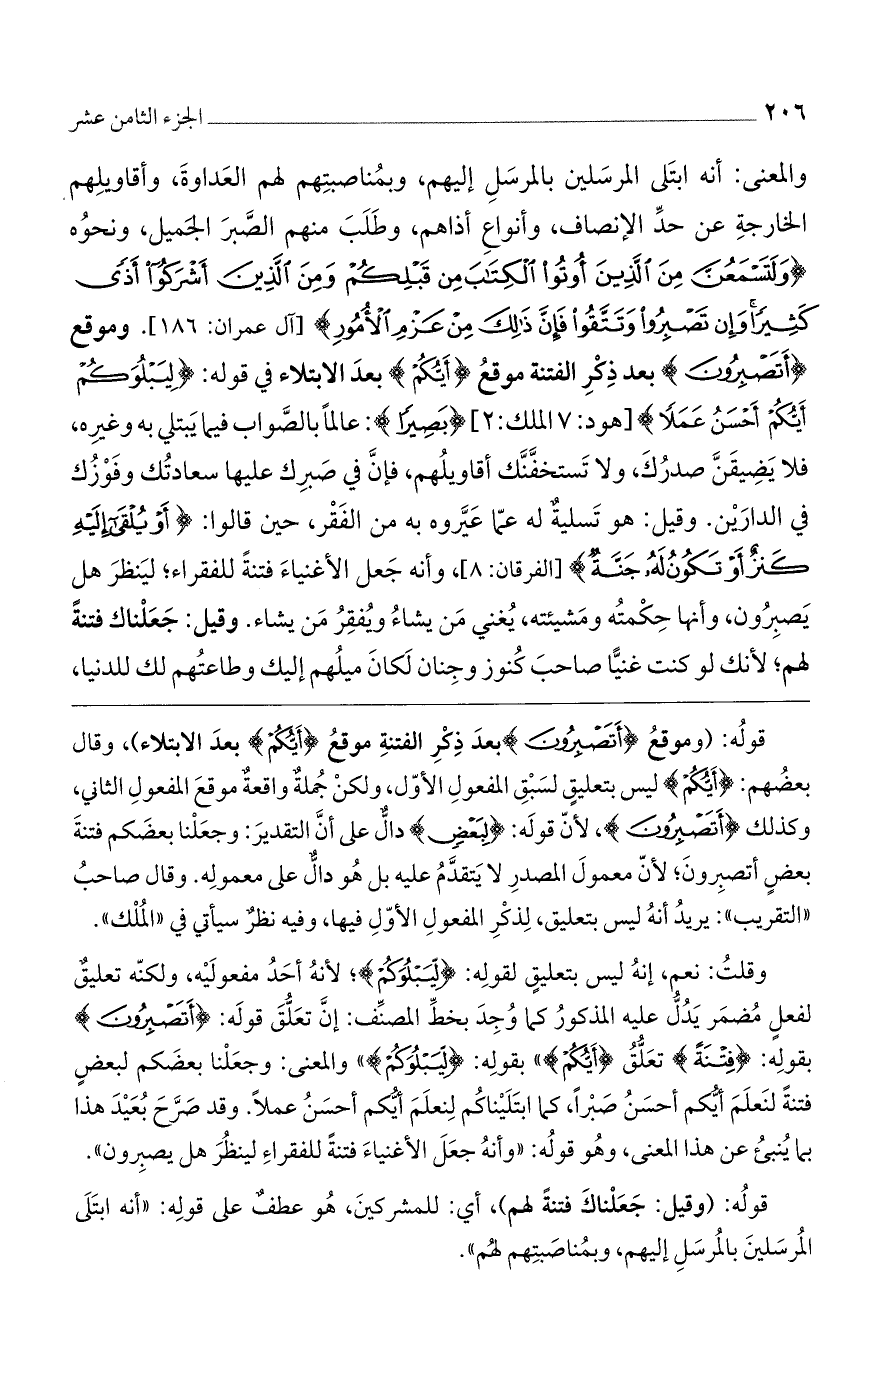 ٢٠٦ الجزء الثامن عشر
والمعنى: أنه ابتَلى المرسَلين بالمرسَلِ إليهم، وبمُناصبتِهم لهم العَداوةَ، وأقاويلِهم
الخارجةِ عن حدِّ الإنصاف، وأنواعِ أذاهم، وطَلَبَ منهم الصَّبرَ الجَميل، ونحوُه
﴿وَلَتَسْمَعُنَّ مِنَ الَّذِينَ أُوتُوا الْكِتَابَ مِن قَبْلِكُمْ وَمِنَ الَّذِينَ أَشْرَكُوا أَذًى
كَثِيرًا وَإِن تَصْبِرُوا وَتَتَّقُوا فَإِنَّ ذَٰلِكَ مِنْ عَزْمِ الْأُمُورِ﴾ [آل عمران: ١٨٦]. وموقع
﴿أَتَصْبِرُونَ﴾ بعد ذِكْرِ الفتنة موقعُ ﴿أَيُّكُمْ﴾ بعدَ الابتلاء في قوله: ﴿لِيَبْلُوَكُمْ
أَيُّكُمْ أَحْسَنُ عَمَلًا﴾ [هود: ٧ الملك: ٢] ﴿بَصِيرًا﴾: عالماً بالصَّواب فيما يَبتلي به وغيرِه،
فلا يَضِيقَنَّ صدرُكَ، ولا تَستخفَّنَّك أقاويلُهم، فإنَّ في صَبرِك عليها سعادتُك وفَوْزُك
في الدارَيْن. وقيل: هو تَسليةٌ له عمّا عَيَّروه به من الفَقْر، حين قالوا: ﴿أَوْ يُلْقَىٰ إِلَيْهِ
كَنزٌ أَوْ تَكُونُ لَهُ جَنَّةٌ﴾ [الفرقان: ٨]، وأنه جَعل الأغنياءَ فتنةً للفقراء؛ ليَنظرَ هل
يَصبِرُون، وأنها حِكْمتُه ومَشيئته، يُغني مَن يشاءُ ويُفقِرُ مَن يشاء. وقيل: جَعَلْناك فتنةً
لهم؛ لأنك لو كنت غنيًّا صاحبَ كُنوز وجِنان لَكانَ ميلُهم إليك وطاعتُهم لك للدنيا،
قولُه: (وموقعُ ﴿أَتَصْبِرُونَ﴾ بعدَ ذِكْرِ الفتنةِ موقعُ ﴿أَيُّكُمْ﴾ بعدَ الابتلاء)، وقال
بعضُهم: ﴿أَيُّكُمْ﴾ ليس بتعليقٍ لسَبْقِ المفعولِ الأوّل، ولكنْ جُملةٌ واقعةٌ موقعَ المفعولِ الثاني،
وكذلك ﴿أَتَصْبِرُونَ﴾، لأنّ قولَه: ﴿لِبَعْضٍ﴾ دالٌّ على أنَّ التقديرَ: وجعَلْنا بعضَكم فتنةَ
بعضٍ أتصبِرونَ؛ لأنّ معمولَ المصدرِ لا يَتقدَّمُ عليه بل هُو دالٌّ على معمولِه. وقال صاحبُ
«التقريب»: يريدُ أنهُ ليس بتعليق، لِذكْرِ المفعولِ الأوّلِ فيها، وفيه نظرٌ سيأتي في «المُلْك».
وقلتُ: نعم، إنهُ ليس بتعليقٍ لقولِه: ﴿لِيَبْلُوَكُمْ﴾؛ لأنهُ أحَدُ مفعولَيْه، ولكنّه تعليقٌ
لفعلٍ مُضمَر يَدُلُّ عليه المذكورُ كما وُجِدَ بخطِّ المصنِّف: إنَّ تعَلُّقَ قولَه: ﴿أَتَصْبِرُونَ﴾
بقولِه: ﴿فِتْنَةً﴾ تعَلُّقُ ﴿أَيُّكُمْ﴾» بقولِه: ﴿لِيَبْلُوَكُمْ﴾» والمعنى: وجعَلْنا بعضَكم لبعضٍ
فتنةً لنَعلَمَ أيُّكم أحسَنُ صَبْراً، كما ابتَلَيْناكُم لِنعلَمَ أيُّكم أحسَنُ عملاً. وقد صَرَّحَ بُعَيْدَ هذا
بما يُنبئُ عن هذا المعنى، وهُو قولُه: «وأنهُ جعَلَ الأغنياءَ فتنةً للفقراءِ لينظُرَ هل يصبِرون».
قولُه: (وقيل: جَعَلْناكَ فتنةً لهم)، أي: للمشركينَ، هُو عطفٌ على قولِه: «أنه ابتَلَى
المُرسَلينَ بالمُرسَلِ إليهم، وبمُناصَبتِهم لهُم».